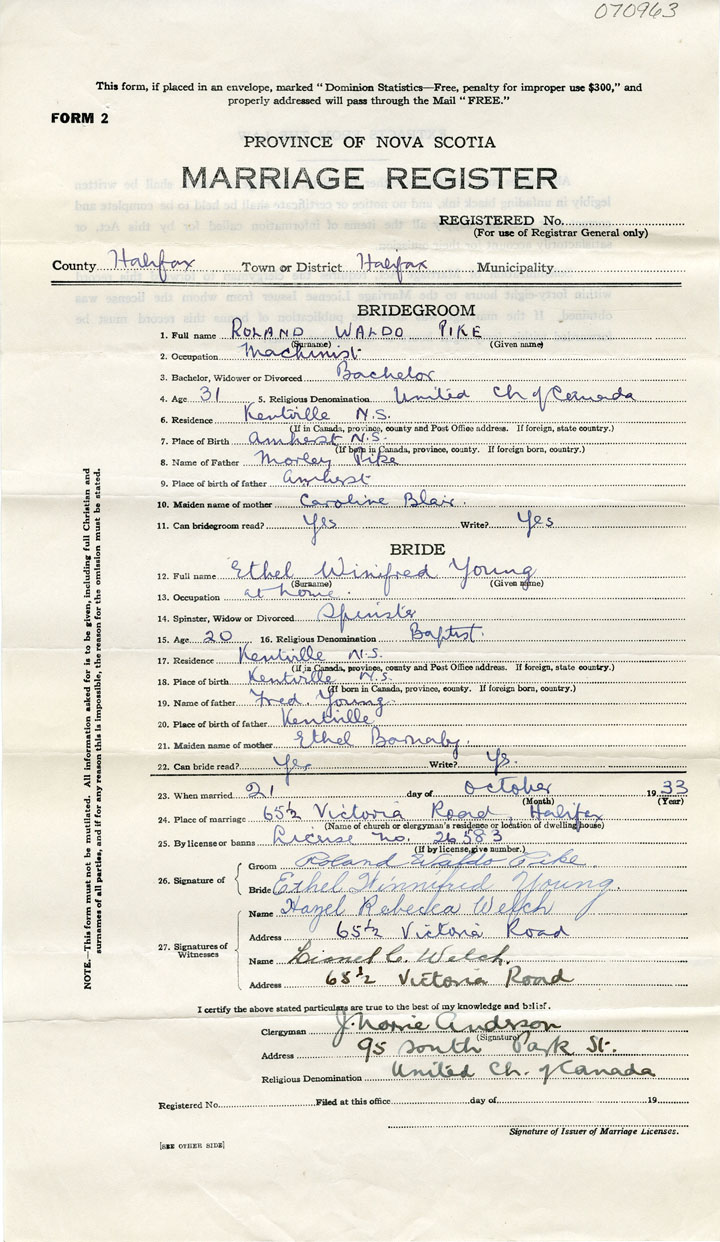 070963
This form, if placed in an envelope, marked "Dominion Statistics—Free, penalty for improper use $300," and
properly addressed will pass through the Mail "FREE."
FORM 2
PROVINCE OF NOVA SCOTIA
MARRIAGE REGISTER
REGISTERED No.
(For use of Registrar General only)
County Halifax Town or District Halifax Municipality
BRIDEGROOM
1. Full name ROLAND WALDO PIKE
(Surname) (Given name)
2. Occupation Machinist
3. Bachelor, Widower or Divorced Bachelor
4. Age 31 5. Religious Denomination United Ch of Canada
6. Residence Kentville N.S.
(If in Canada, province, county and Post Office address. If foreign, state country.)
7. Place of Birth Amherst N.S.
(If born in Canada, province, county. If foreign born, country.)
8. Name of Father Morley Pike
9. Place of birth of father Amherst
10. Maiden name of mother Caroline Blair.
11. Can bridegroom read? Yes Write? Yes
BRIDE
12. Full name Ethel Winifred Young
(Surname) (Given name)
13. Occupation at home.
14. Spinster, Widow or Divorced Spinster
15. Age 20 16. Religious Denomination Baptist.
17. Residence Kentville N.S.
(If in Canada, province, county and Post Office address. If foreign, state country.)
18. Place of birth Kentville N.S.
(If born in Canada, province, county. If foreign born, country.)
19. Name of father Fred. Young
20. Place of birth of father Kentville
21. Maiden name of mother Ethel Barnaby.
22. Can bride read? Yes Write? Yes.
23. When married 21 day of October 1933
(Month) (Year)
24. Place of marriage 65½ Victoria Road, Halifax
(Name of church or clergyman's residence or location of dwelling house)
25. By license or banns License no. 26583
(If by license, give number.)
26. Signature of
Groom Roland Waldo Pike.
Bride Ethel Winnifred Young.
27. Signatures of Witnesses
Name Hazel Rebecca Welch
Address 65½ Victoria Road
Name Lionel C. Welch.
Address 65½ Victoria Road
I certify the above stated particulars are true to the best of my knowledge and belief.
Clergyman J. Norrie Anderson
(Signature)
Address 95 South Park St.
Religious Denomination United Ch. of Canada
Registered No. Filed at this office day of 19
Signature of Issuer of Marriage Licenses.
[SEE OTHER SIDE]
NOTE.—This form must not be mutilated. All information asked for is to be given, including full Christian and
surnames of all parties, and if for any reason this is impossible, the reason for the omission must be stated.